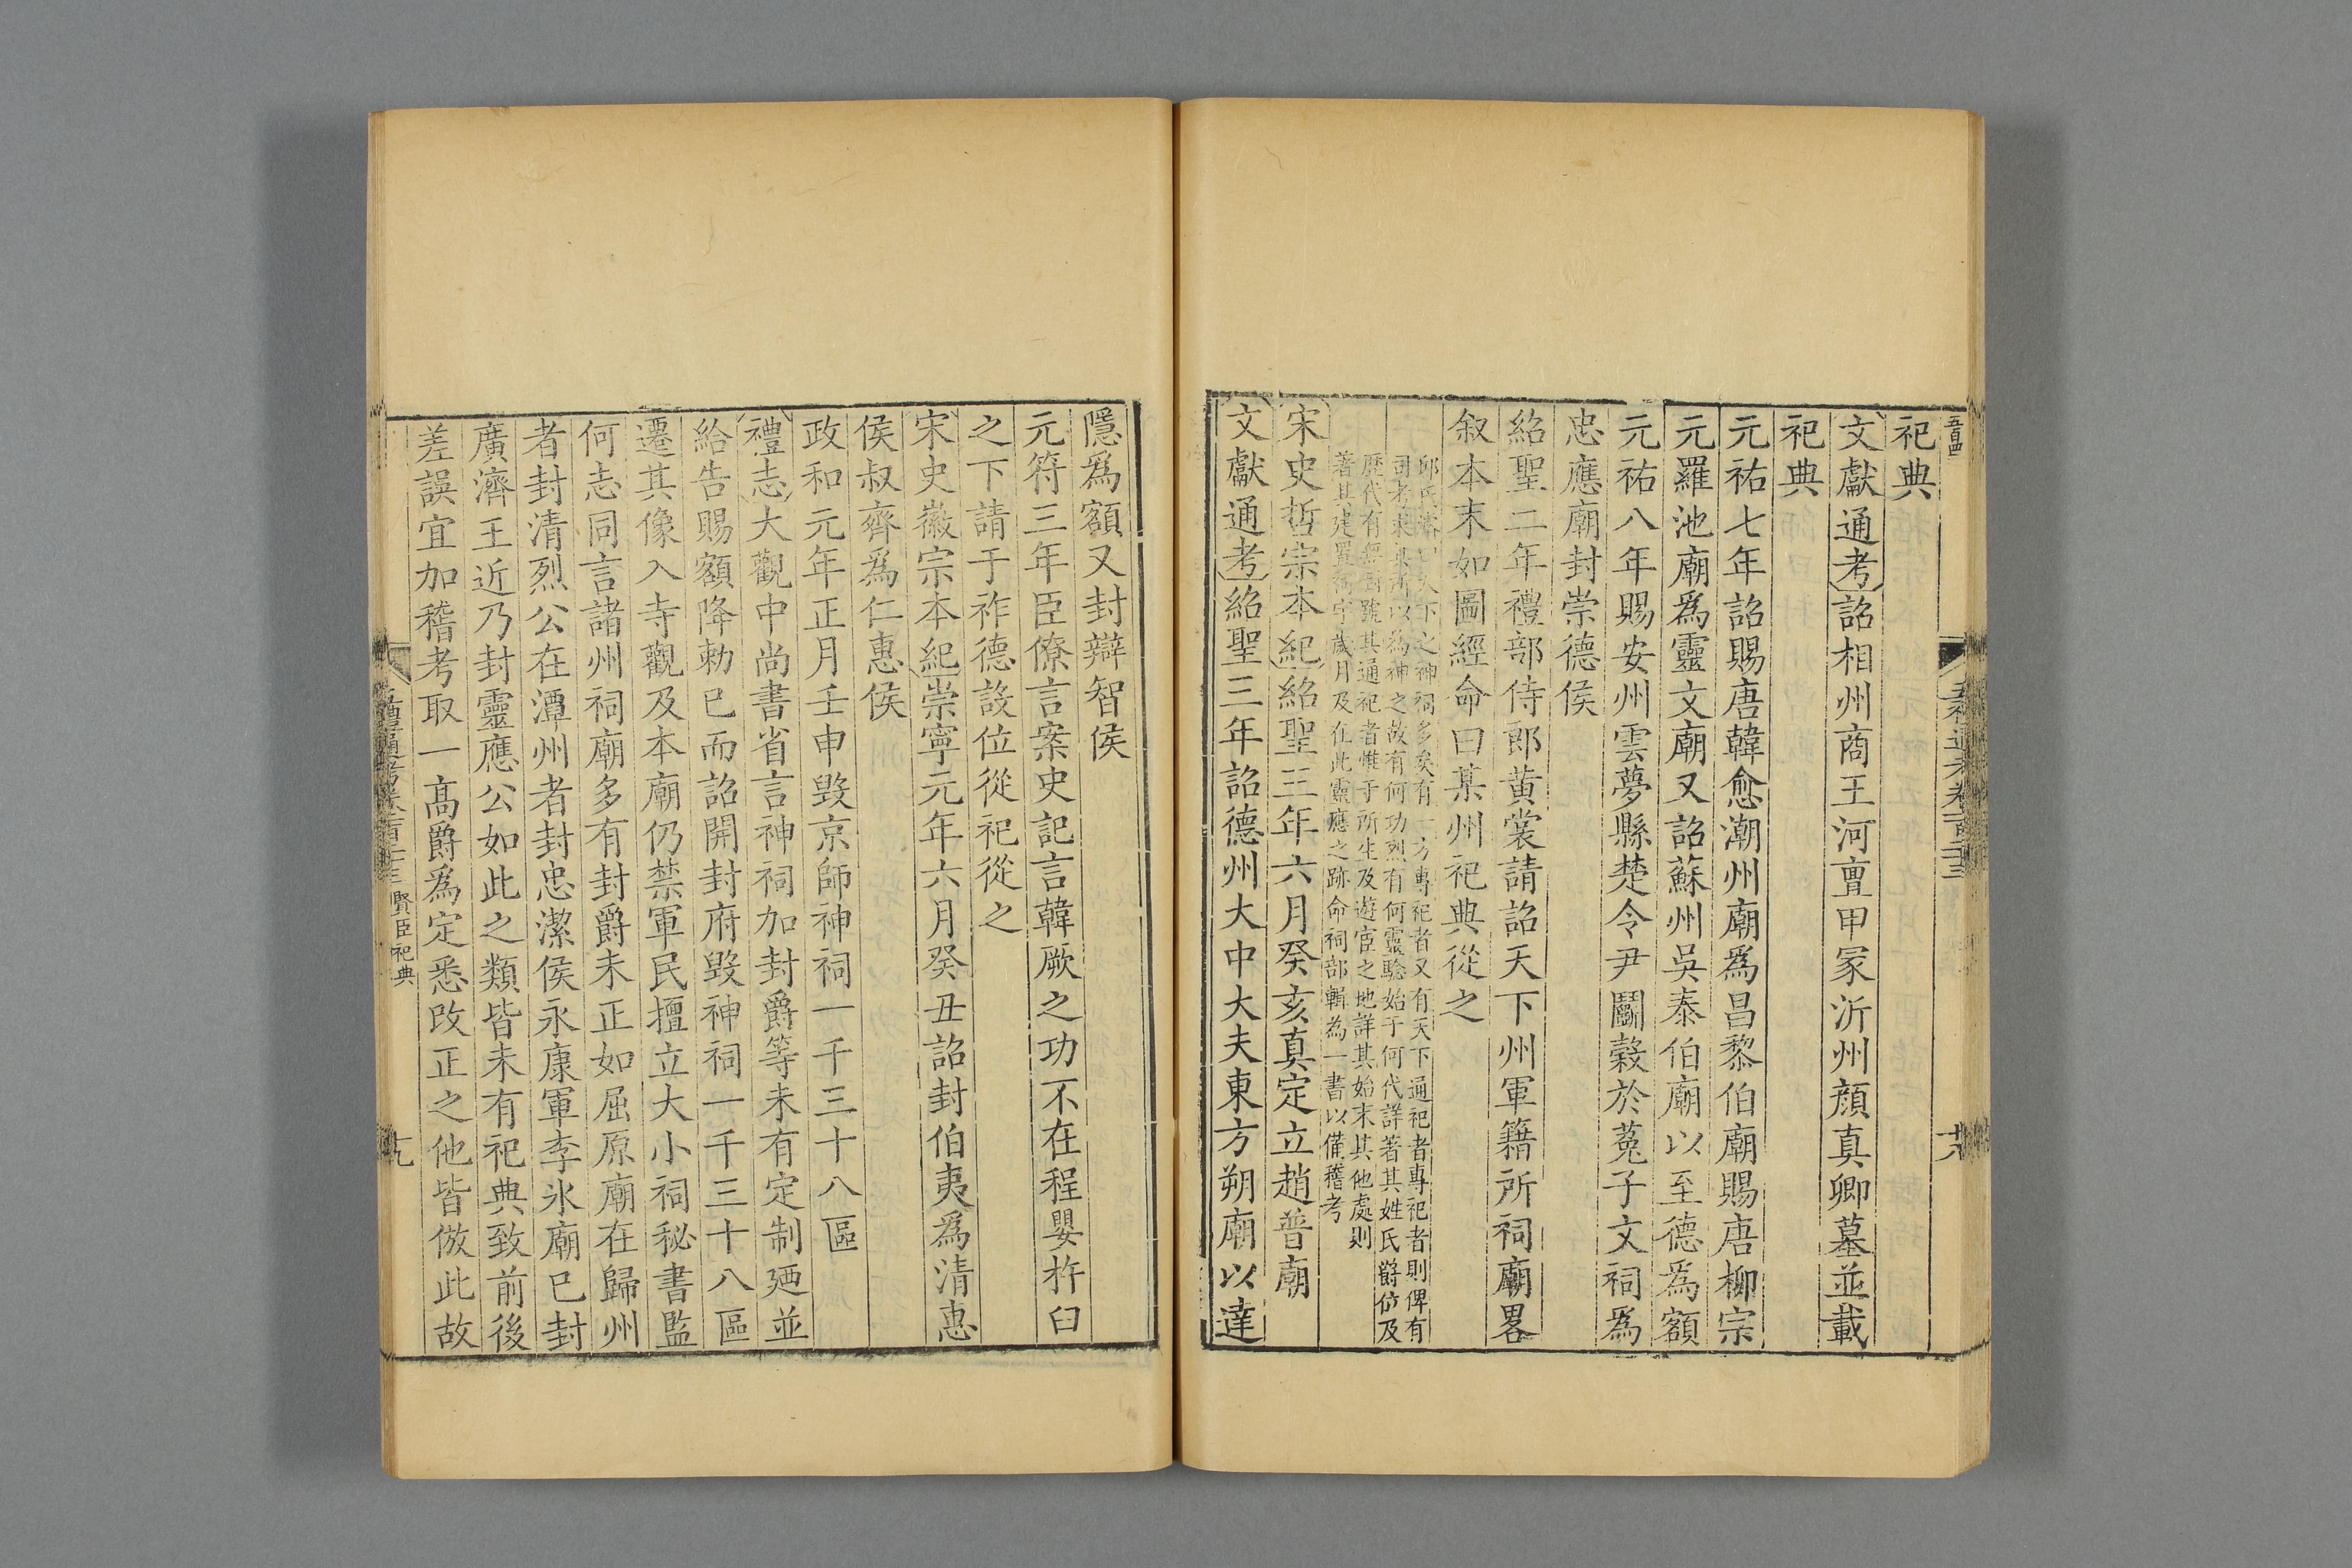 五百四
祀典
文獻通考詔相州商王河亶甲冢沂州顏真卿墓並載
祀典
元祐七年詔賜唐韓愈潮州廟爲昌黎伯廟賜唐柳宗
元羅池廟爲靈文廟又詔蘇州吳泰伯廟以至德爲額
元祐八年賜安州雲夢縣楚令尹鬭穀於菟子文祠爲
忠應廟封崇德侯
紹聖二年禮部侍郎黃裳請詔天下州軍籍所祠廟畧
叙本末如圖經命曰某州祀典從之
天下之神祠多矣有一方專祀者又有天下通祀者專祀者則俾有
司考其所以為神之故有何功烈有何靈驗始于何代詳著其姓氏爵位及
歷代有無封號其通祀者惟于所生及遊宦之地詳其始末其他處則
著其建置祠宇歲月及在此靈應之跡命祠部輯為一書以備稽考
宋史哲宗本紀紹聖三年六月癸亥真定立趙普廟
文獻通考紹聖三年詔德州大中大夫東方朔廟以達
隱爲額又封辯智侯
元符三年臣僚言案史記言韓厥之功不在程嬰杵臼
之下請于祚德設位從祀從之
宋史徽宗本紀崇寧元年六月癸丑詔封伯夷爲清惠
侯叔齊爲仁惠侯
政和元年正月壬申毀京師神祠一千三十八區
禮志大觀中尚書省言神祠加封爵等未有定制廼並
給告賜額降勅已而詔開封府毀神祠一千三十八區
遷其像入寺觀及本廟仍禁軍民擅立大小祠秘書監
何志同言諸州祠廟多有封爵未正如屈原廟在歸州
者封清烈公在潭州者封忠潔侯永康軍李氷廟已封
廣濟王近乃封靈應公如此之類皆未有祀典致前後
差誤宜加稽考取一高爵爲定悉改正之他皆倣此故
賢臣祀典